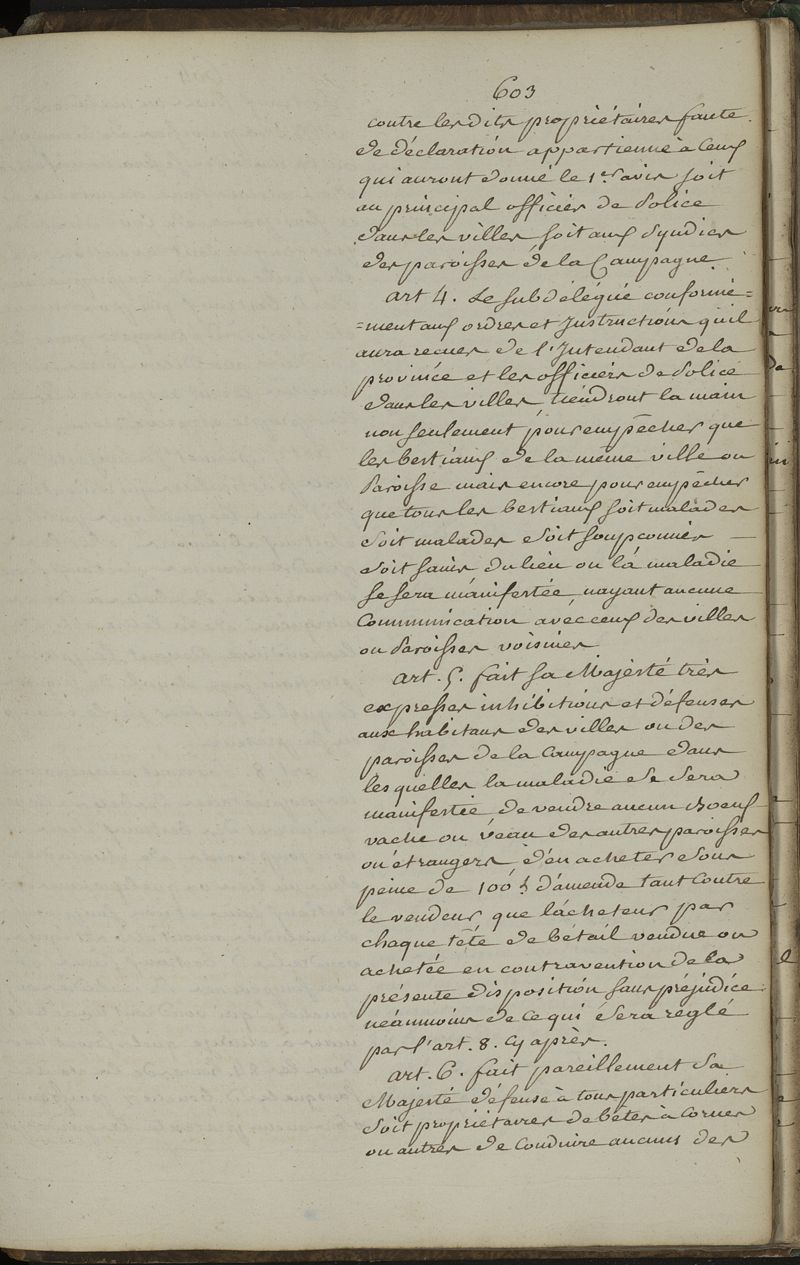 603
contre lesdits propriétaires faute
de déclaration appartienne à ceux
qui auront donné le 1er avis soit
au principal officier de Police
dans les villes soit aux Syndics
des paroisses de la Campagne.
art 4. Le subdélégué conformé=
=ment aux ordres et Instructions quil
aura recues de l'Intendant de la
province et les officiers de Police
dans les villes tiendront la main
non seulement pour empêcher que
les bestiaux de la même ville ou
Paroisse mais encore pour empêcher
que tous les bestiaux soit malades
soit malades soit soupconnés —
soit sains du lieu ou la maladie
se sera manifestée nayant aucune
Communication avec ceux des villes
ou Paroisses voisines
art. 5. fait sa Majesté très
expresses inhibitions et défenses
aux habitans des villes ou des
paroisses de la Campagne dans
les quelles la maladie se sera
manifestée de vendre aucun Boeuf
vache ou veau des autres paroisses
ou étrangers d'en acheter sous
peine de 100 ₶ d'amende tant contre
le vendeur que lácheteur par
chaque tête de bétail vendue ou
achetée en contravention de la
présente disposition sans préjudice
néammoins de ce qui sera réglé
par l'art. 8. cy après.
art. 6. fait pareillement Sa
Majesté défense à tous particuliers
soit propriétaires de bêtes à Cornes
ou autres de Conduire aucuns des